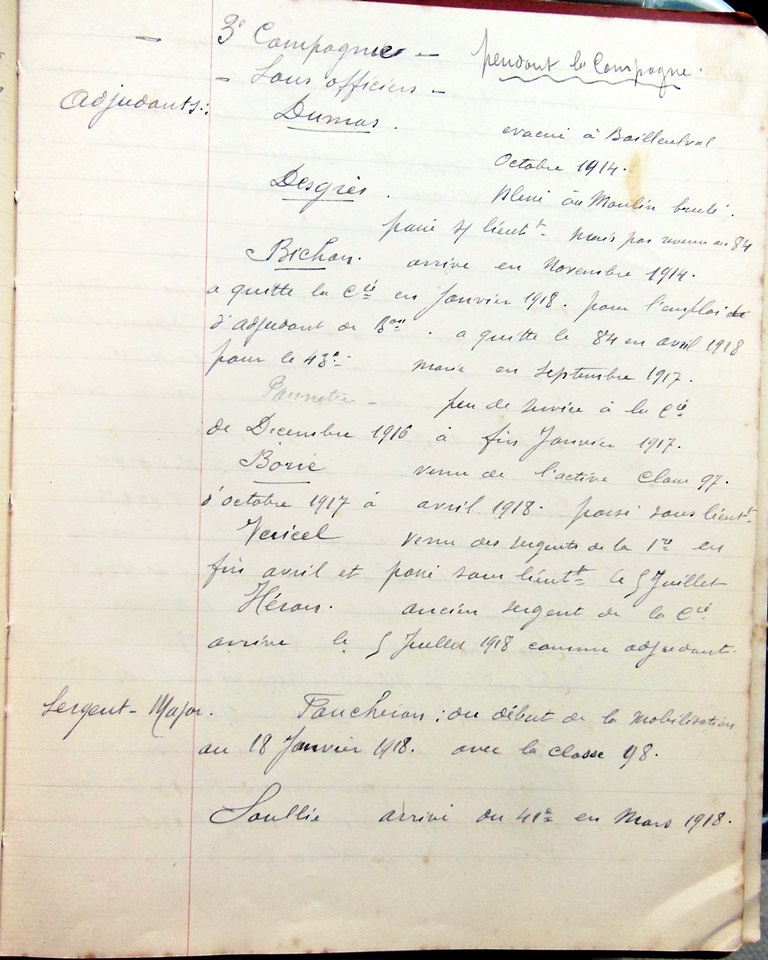 — 3e Compagnie — pendant la Campagne.
- Sous officiers -
Adjudants:
Dumas. evacué à Bailleulval
Octobre 1914.
Desgrès. blessé au Moulin brulé.
passé s/ lieutt. mais pas revenu au 84
Bichon. arrive en Novembre 1914.
a quitté la Cie en Janvier 1918. pour l'emploi de
d'adjudant de Bon. a quitté le 84 en avril 1918
pour le 43e. marié en septembre 1917.
Pannetier - peu de service à la Cie
de Decembre 1916 à fin Janvier 1917.
Borie venu de l'active classe 97.
d'octobre 1917 à avril 1918. passé sous lieutt.
Vericel venu des sergents de la 1re en
fin avril et passé sous lieutt le 5 Juillet
Héran. ancien sergent de la Cie
arrive le 5 Juillet 1918 comme adjudant.
Sergent-Major. : du début de la mobilisation
au 18 Janvier 1918. avec la classe 98.
Soullie arrivé du 41e en Mars 1918.